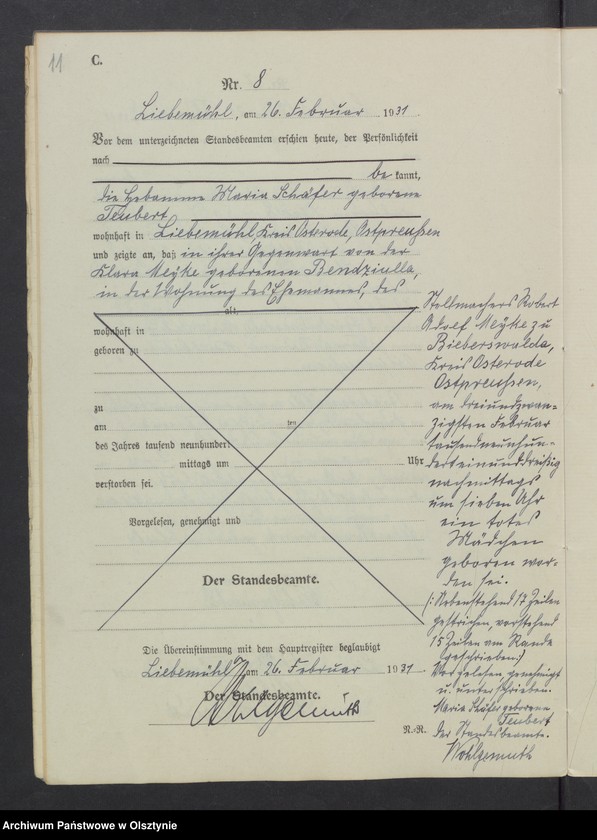 11
C.
Nr. 8
Liebemühl, am 26. Februar 1931
Vor dem unterzeichneten Standesbeamten erschien heute, der Persönlichkeit
nach
be kannt,
die Hebamme Maria Schäfer geborene
Teubert
wohnhaft in Liebemühl, Kreis Osterode, Ostpreußen
und zeigte an, daß in ihrer Gegenwart von der
Klara Meyke geborenen Bendziulla,
in der Wohnung des Ehemannes, des
alt,
wohnhaft in
geboren zu
zu
am ten
des Jahres tausend neunhundert
mittags um Uhr
verstorben sei.
Vorgelesen, genehmigt und
Der Standesbeamte.
Stellmachers Robert
Adolf Meyke zu
Bieberswalde,
Kreis Osterode
Ostpreußen,
am dreiundzwan-
zigsten Februar
tausendneunhun-
derteinunddreißig
nachmittags
um sieben Uhr
ein totes
Mädchen
geboren wor-
den sei.
(: Nebenstehend 17 Zeilen
gestrichen, vorstehend
15 Zeilen am Rande
geschrieben :)
Vorgelesen, genehmigt
u. unterschrieben.
Maria Schäfer geborene
Teubert
Der Standesbeamte.
Wohlgemuth
Die Übereinstimmung mit dem Hauptregister beglaubigt
Liebemühl, am 26. Februar 1931
Der Standesbeamte.
Wohlgemuth
N.-R.
Archiwum Państwowe w Olsztynie